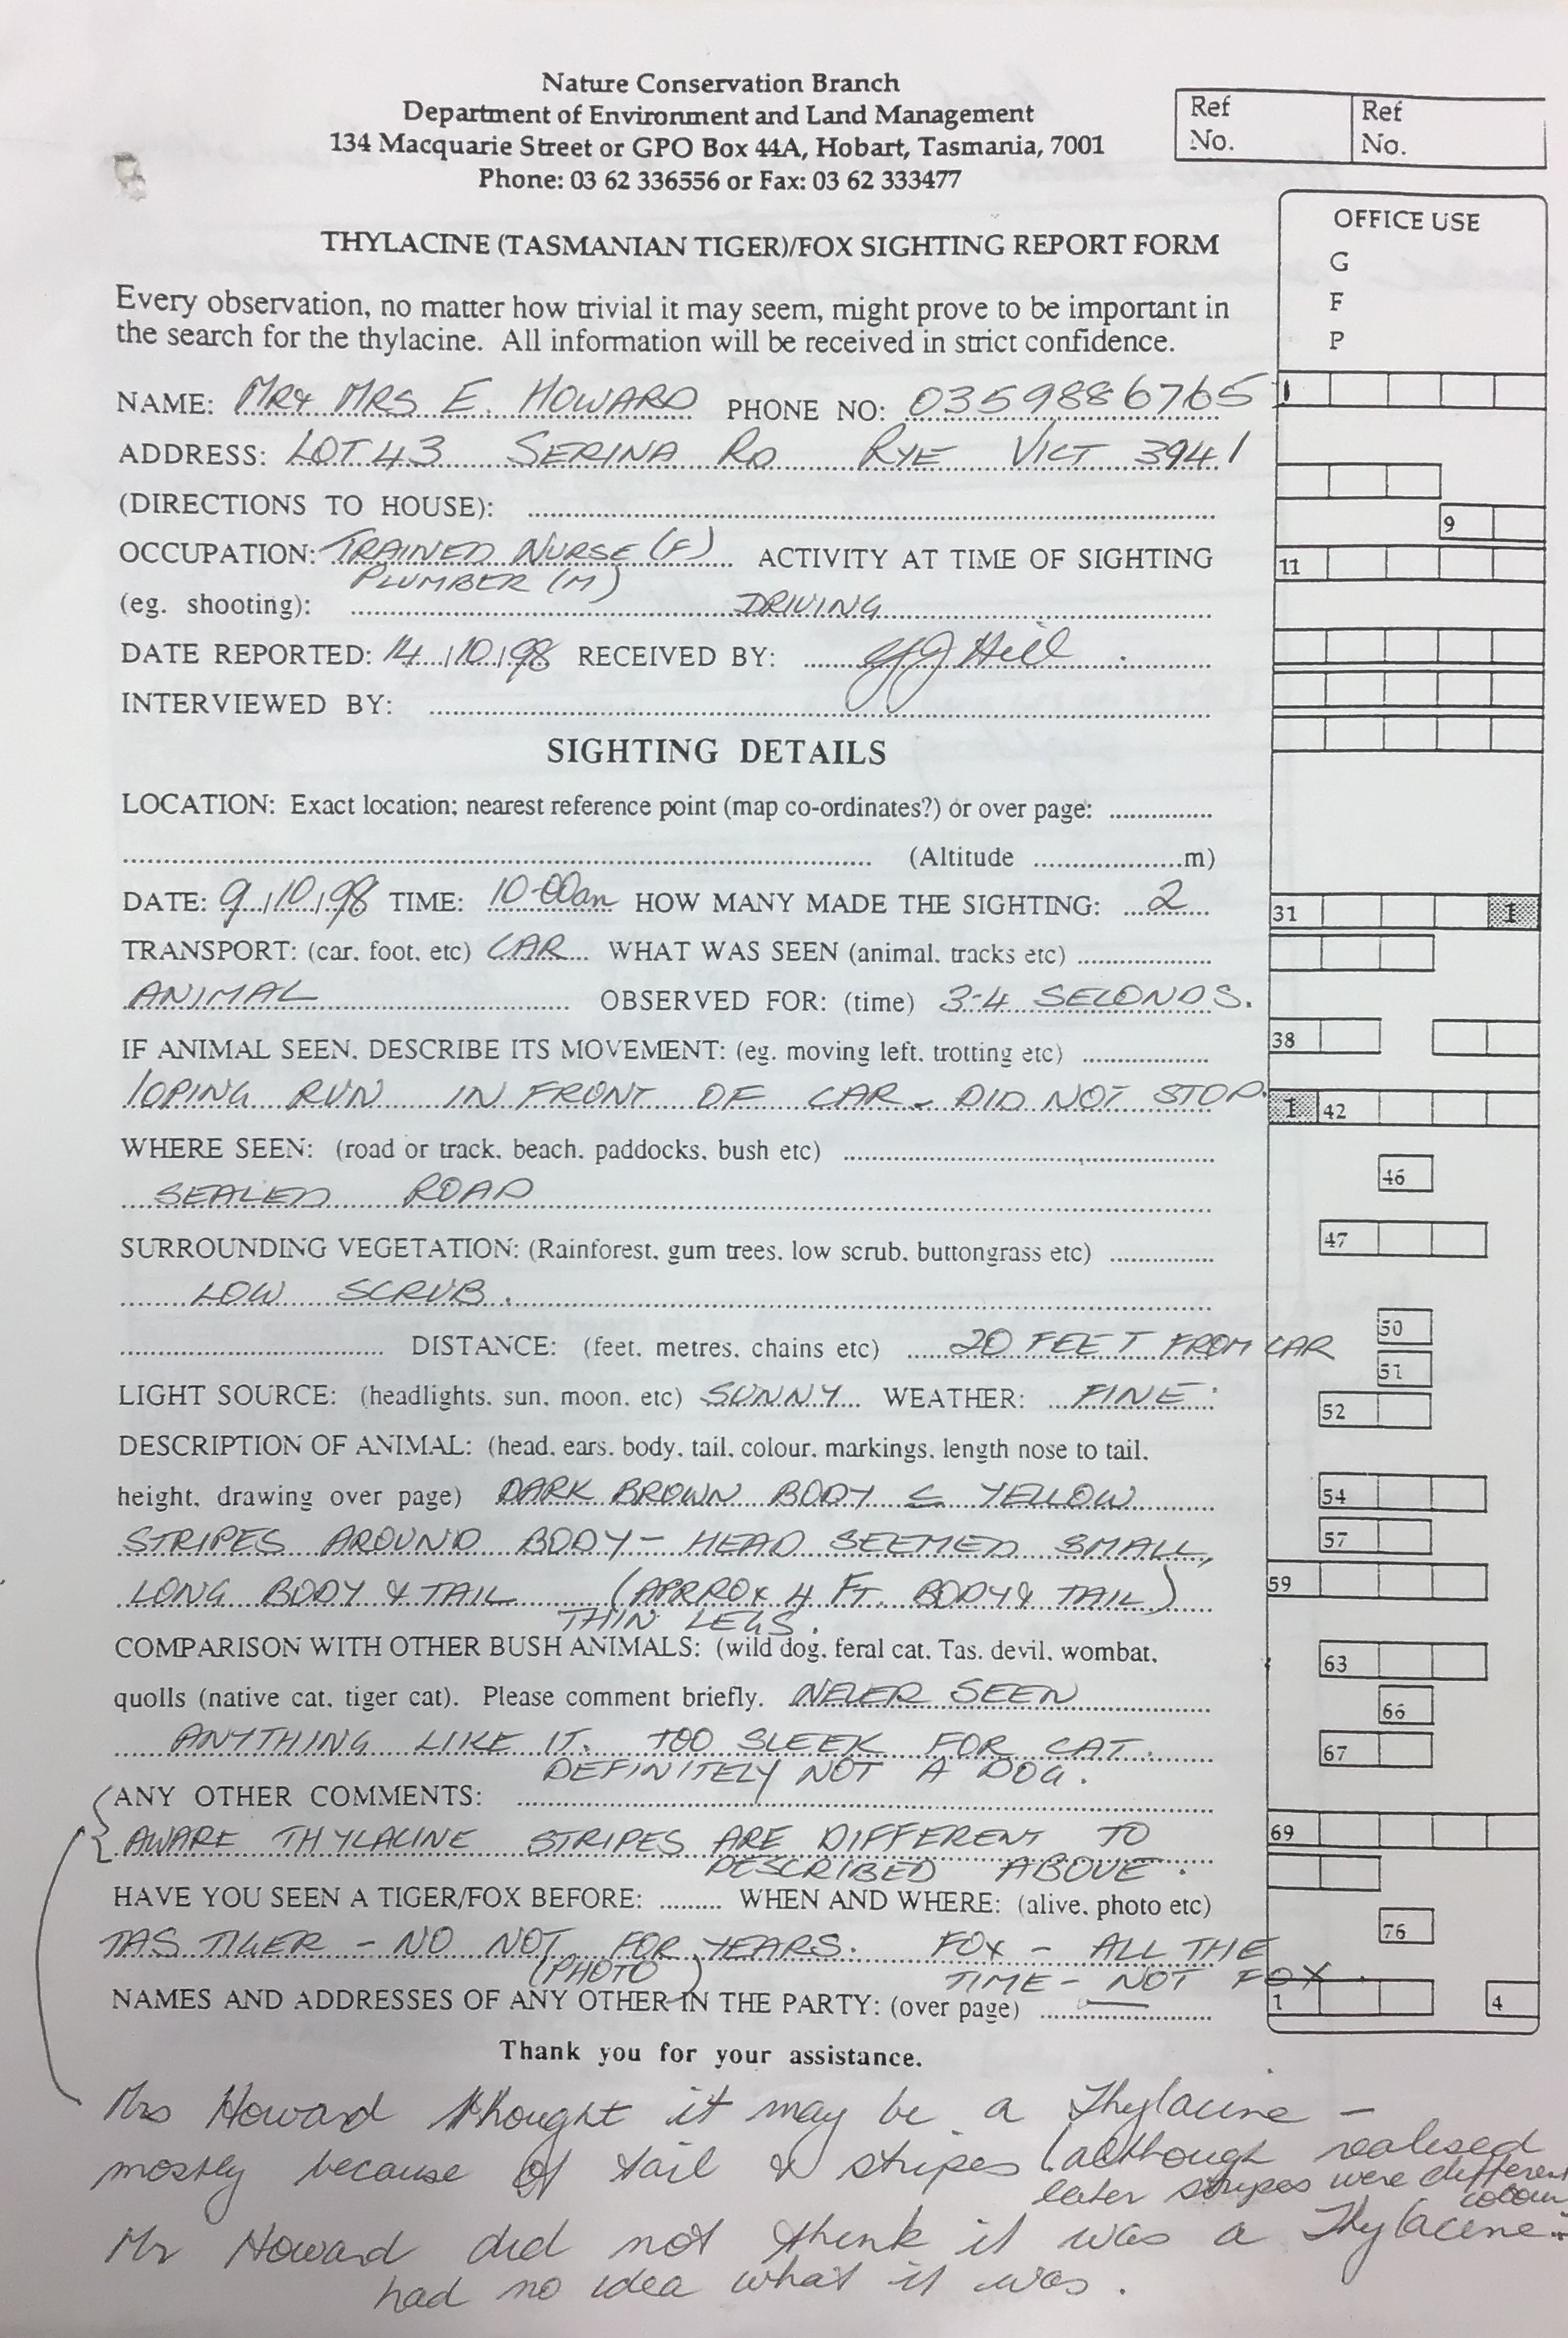 Nature Conservation Branch
Department of Environment and Land Management
134 Macquarie Street or GPO Box 44A, Hobart, Tasmania, 7001
Phone: 03 62 336556 or Fax: 03 62 333477
Ref No.
Ref No.
THYLACINE (TASMANIAN TIGER)/FOX SIGHTING REPORT FORM
OFFICE USE
G
F
P
Every observation, no matter how trivial it may seem, might prove to be important in
the search for the thylacine. All information will be received in strict confidence.
NAME: MR & MRS E. HOWARD PHONE NO: 0359886765 1
ADDRESS: LOT 43 SERINA RD RYE VICT 3941
(DIRECTIONS TO HOUSE): 
9
OCCUPATION: TRAINED NURSE (F) ACTIVITY AT TIME OF SIGHTING 11
PLUMBER (M)
(eg. shooting): DRIVING
DATE REPORTED: 14/10/98 RECEIVED BY: Hill
INTERVIEWED BY:
SIGHTING DETAILS
LOCATION: Exact location; nearest reference point (map co-ordinates?) or over page:
(Altitude m)
DATE: 9/10/98 TIME: 10-00am HOW MANY MADE THE SIGHTING: 2 31 I
TRANSPORT: (car, foot, etc) CAR WHAT WAS SEEN (animal, tracks etc)
ANIMAL OBSERVED FOR: (time) 3-4 SECONDS.
IF ANIMAL SEEN, DESCRIBE ITS MOVEMENT: (eg. moving left, trotting etc) 38
LOPING RUN IN FRONT OF CAR - DID NOT STOP. I 42
WHERE SEEN: (road or track, beach, paddocks, bush etc)
46
SEALED ROAD
SURROUNDING VEGETATION: (Rainforest, gum trees, low scrub, buttongrass etc) 47
LOW SCRUB.
50
DISTANCE: (feet, metres, chains etc) 20 FEET FROM CAR
51
LIGHT SOURCE: (headlights, sun, moon, etc) SUNNY WEATHER: FINE. 52
DESCRIPTION OF ANIMAL: (head, ears, body, tail, colour, markings, length nose to tail,
height, drawing over page) DARK BROWN BODY c YELLOW 54
STRIPES AROUND BODY - HEAD SEEMED SMALL, 57
LONG BODY & TAIL (APRROX 4 FT. BODY & TAIL) 59
THIN LEGS.
COMPARISON WITH OTHER BUSH ANIMALS: (wild dog, feral cat, Tas. devil, wombat, 63
quolls (native cat, tiger cat). Please comment briefly. NEVER SEEN 66
ANYTHING LIKE IT. TOO SLEEK FOR CAT. 67
DEFINITELY NOT A DOG.
ANY OTHER COMMENTS:
AWARE THYLACINE STRIPES ARE DIFFERENT TO 69
DESCRIBED ABOVE.
HAVE YOU SEEN A TIGER/FOX BEFORE: WHEN AND WHERE: (alive, photo etc)
76
TAS TIGER - NO NOT FOR YEARS. FOX - ALL THE
(PHOTO) TIME - NOT FOX.
NAMES AND ADDRESSES OF ANY OTHER IN THE PARTY: (over page) — 1 4
Thank you for your assistance.
Mrs Howard thought it may be a Thylacine -
mostly because of tail & stripes (although realised
later stripes were different
colour
Mr Howard did not think it was a Thylacine -
had no idea what it was.